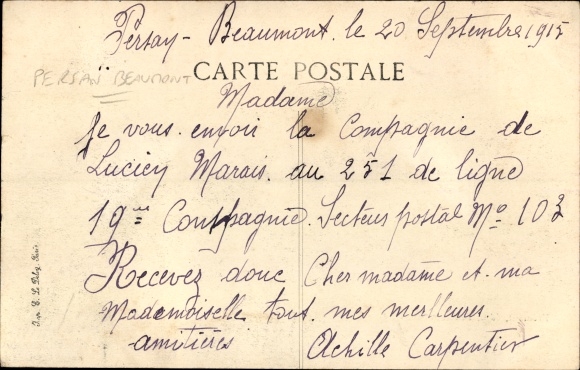 Persay-Beaumont. le 20 Septembre 1915
PERSAN BEAUMONT
CARTE POSTALE
Madame
Je vous envoir la Compagnie de
Lucien Marais. au 251 de ligne
19me Compagnie. Secteur postal No 103
Recevez donc Cher madame et ma
Mademoiselle tout mes merlleures
amitières Achille Carpentier